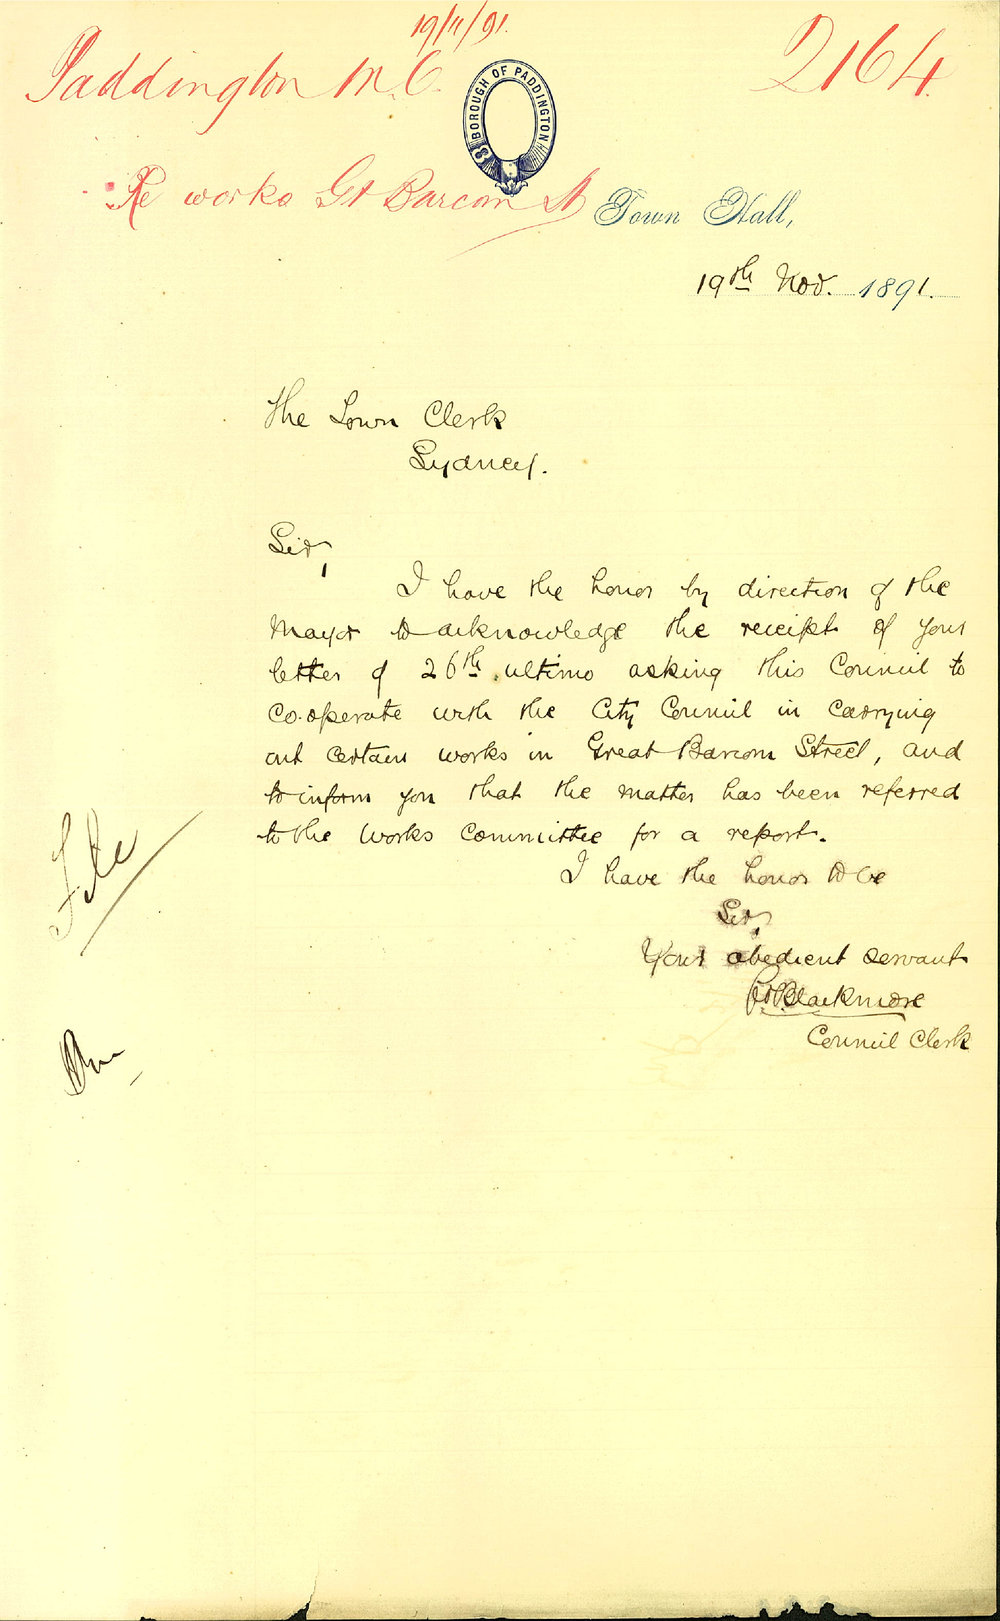 19/11/91.
Paddington M.C.
2164
BOROUGH OF PADDINGTON
Re works Gt Barcom St
Town Hall,
19th Nov. 1891.
The Town Clerk
Sydney.
Sir,
I have the honor by direction of the
Mayor to acknowledge the receipt of your
letter of 26th ultimo asking this Council to
co-operate with the City Council in carrying
out certain works in Great Barcom Street, and
to inform you that the matter has been referred
to the Works Committee for a report.
I have the honor to be
Sir,
Your obedient servant
Blackmore
Council Clerk
File